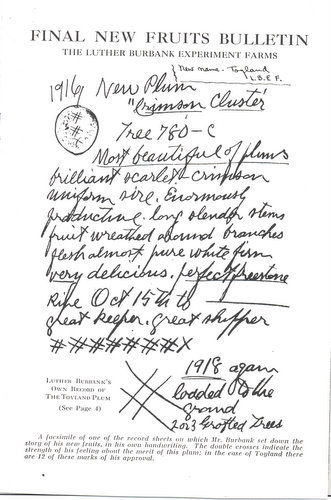 FINAL NEW FRUITS BULLETIN
THE LUTHER BURBANK EXPERIMENT FARMS
New name - Toyland
L.B.E.F.
1916 New Plum
"Crimson Cluster"
Tree 780-C
Most beautiful of plums
brilliant scarlet-crimson
uniform size. Enormously
productive. long slender stems
fruit wreathed around branches
flesh almost pure white firm
very delicious. perfect freestone
Ripe Oct 15th to
great keeper. great shipper
#######X
1918 again
loaded to the
ground
2023 Grafted Trees
LUTHER BURBANK'S
OWN RECORD OF
THE TOYLAND PLUM
(See Page 4)
A facsimile of one of the record sheets on which Mr. Burbank set down the
story of his new fruits, in his own handwriting. The double crosses indicate the
strength of his feeling about the merit of this plum; in the case of Toyland there
are 12 of these marks of his approval.